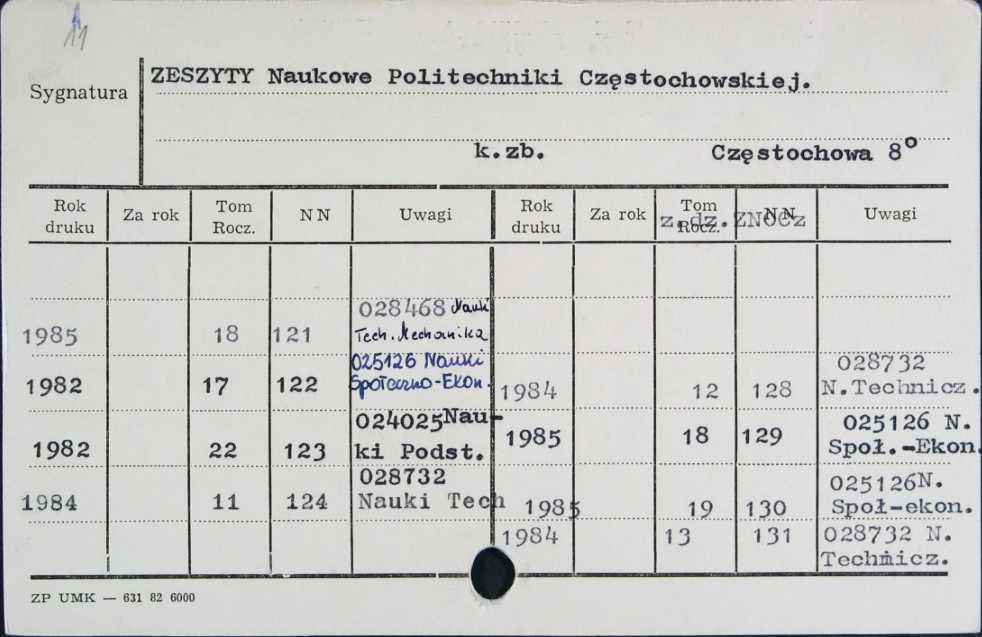 11
ZESZYTY Naukowe Politechniki Częstochowskiej.
Sygnatura
k.zb. Częstochowa 8°
Rok druku Za rok Tom Rocz. NN Uwagi Rok druku Za rok Tom Rocz. NN Uwagi
z.dz.ZNOCz
1985 18 121 028468 Nauki Tech. Mechanika
1982 17 122 025126 Nauki Społeczno-Ekon.
1982 22 123 024025 Nau-
ki Podst.
1984 11 124 028732
Nauki Tech
1984 12 128 028732
N.Technicz.
1985 18 129 025126 N.
Społ.-Ekon.
1985 19 130 025126N.
Społ-ekon.
1984 13 131 028732 N.
Technicz.
ZP UMK — 631 82 6000